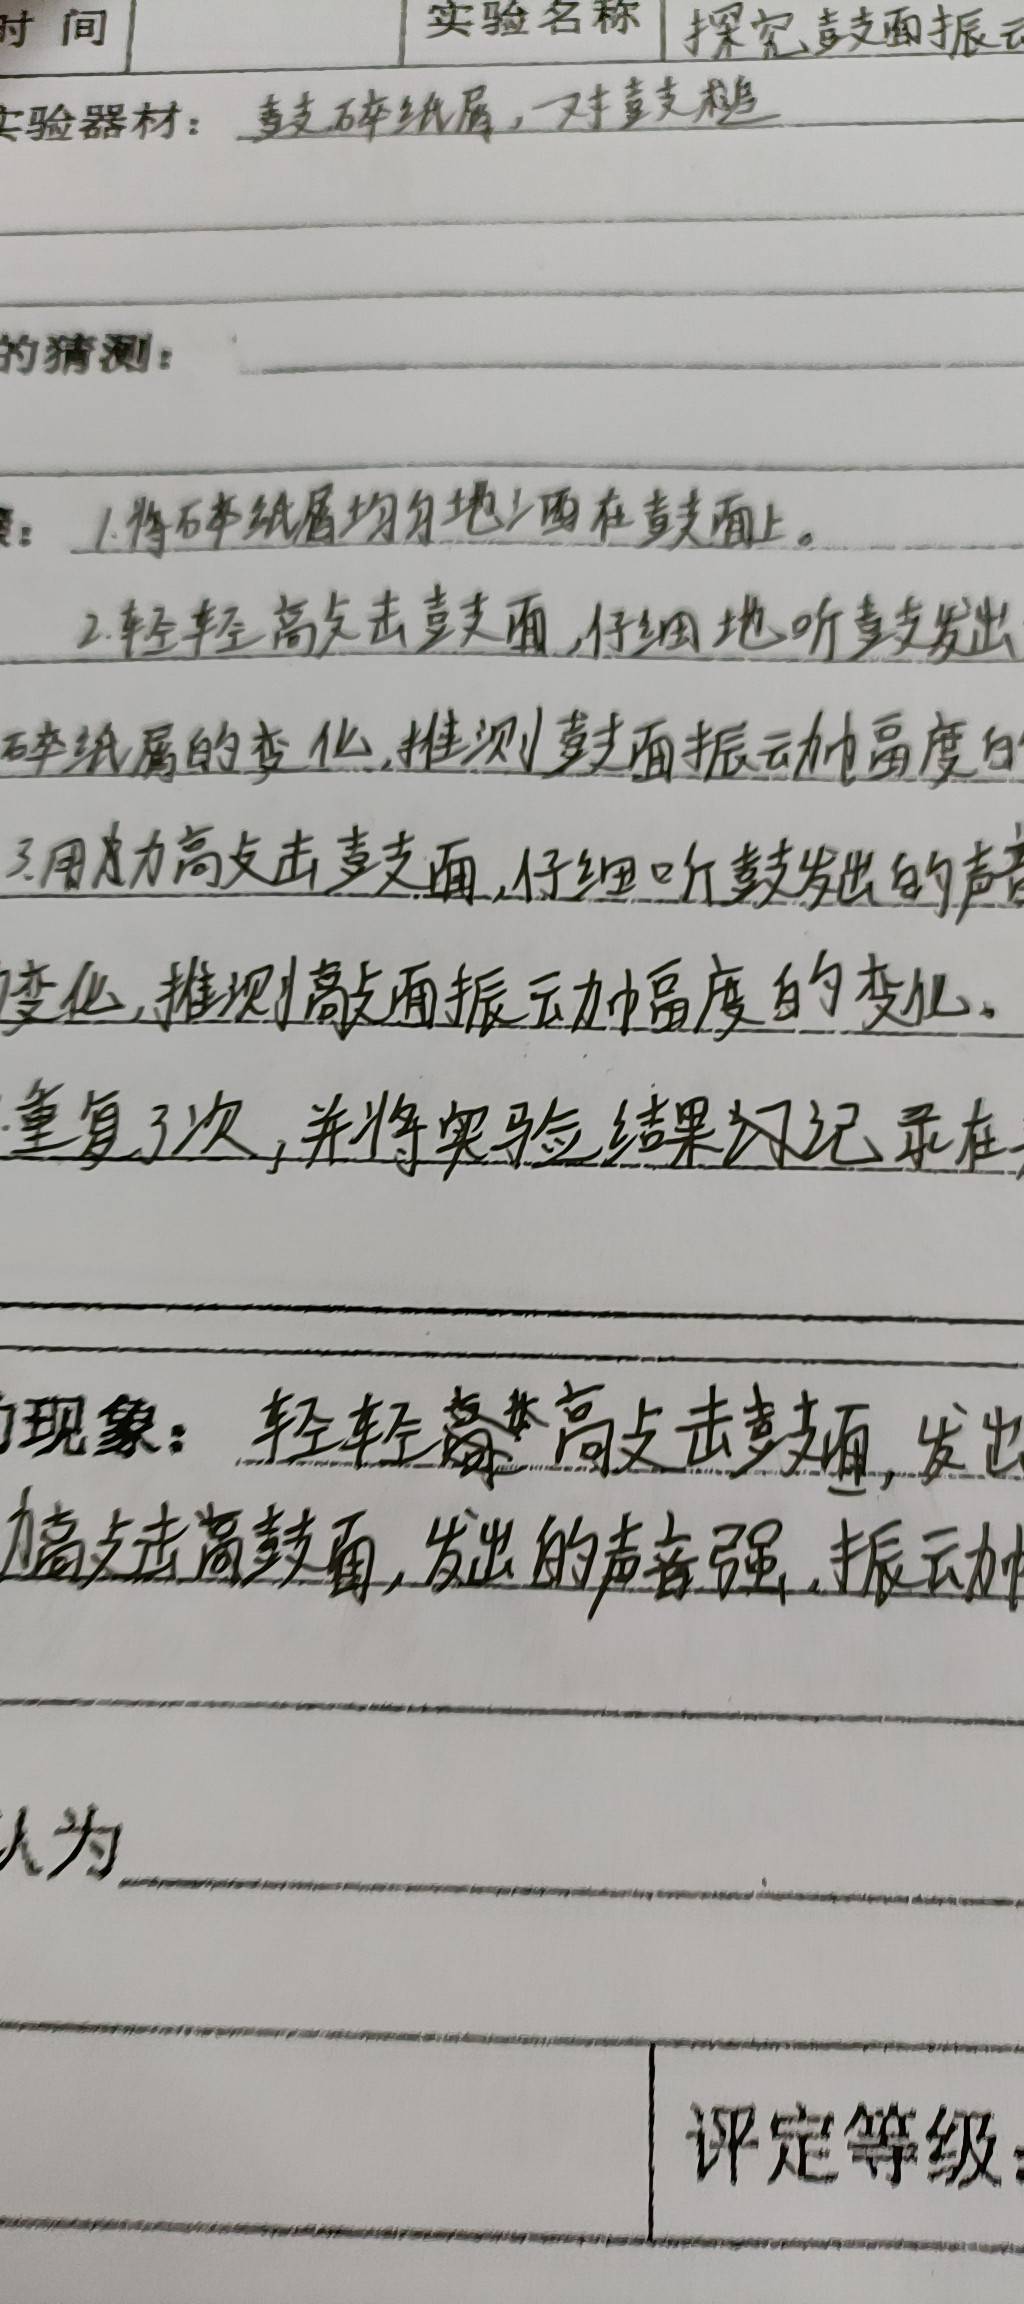 时 间 实验名称 探究鼓面振动
实验器材：鼓碎纸屑，一对鼓槌
的猜测：
1.将碎纸屑均匀地洒在鼓面上。
2.轻轻敲击鼓面，仔细地听鼓发出
碎纸屑的变化，推测鼓面振动幅度的
3.用力敲击鼓面，仔细听鼓发出的声音
变化，推测敲面振动幅度的变化。
重复3次，并将实验结果记录在
现象：轻轻敲击鼓面，发出
力敲击鼓面，发出的声音强，振动幅
认为
评定等级：